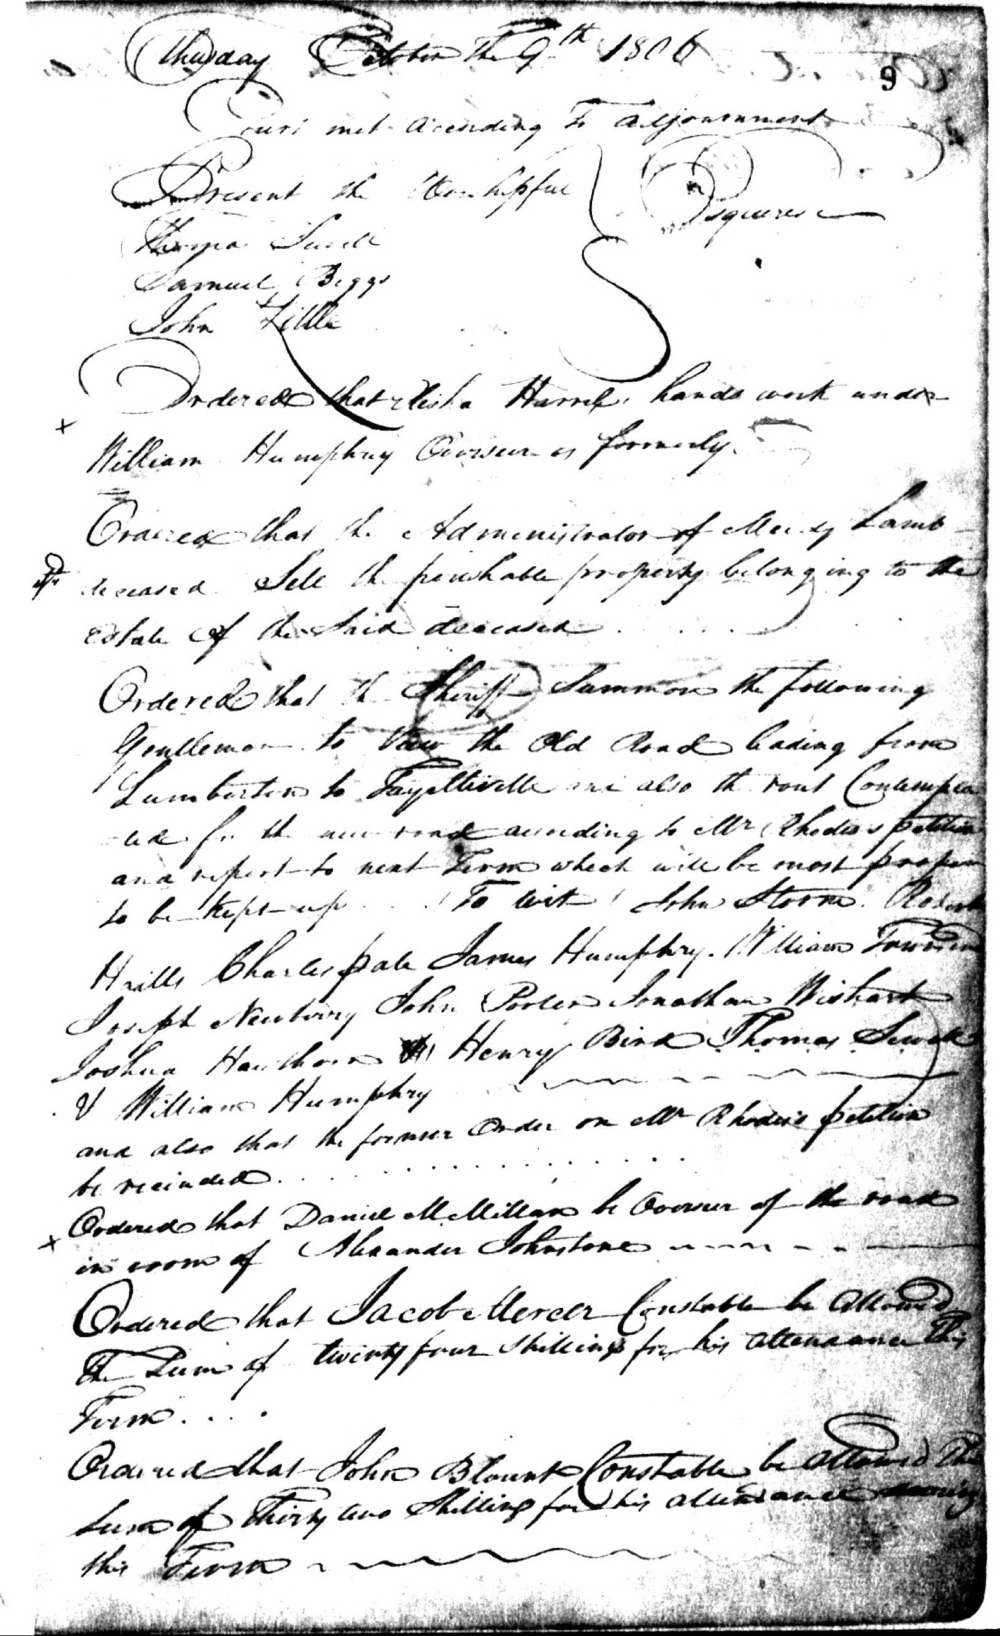 Thursday October The 9th 1806
9
Court met according To adjournment
Present the Worshipful } Esquires
Thomas Sewell
Samuel Biggs
John
Ordered that Elisha hands work under
x
William Humphry Overseer as formerly.
Ordered that the Administrator of Lamb
deceased Sell the perishable property belonging to the
Estate of the Said deceased . . . .
Ordered that the Sheriff Summon the following
Gentlemen to View the Old Road leading from
Lumberton to Fayetteville and also the rout Contempla
ted for the new road according to Mr Rhodes's petition
and report to next Term which will be most proper
to be Kept up . . . To wit John Storm Robert
Charles pate James Humphry. William Townsend
Joseph Newbury John Porter Jonathan Wishart
Joshua Hawthorn Henry Bird Thomas Sewell
& William Humphry
and also that the former Order on Mr Rhodes's petition
be recinded . . . . . . . . . . . .
Ordered that Daniel McMillan be Overseer of the road
x
in room of Alexander Johnstone
Ordered that Jacob Mercer Constable be Allowed
the Sum of twenty four Shillings for his attendance This
Term . . . .
Ordered that John Blount Constable be allowed The
Sum of Thirty two Shillings for his attendance during
this Term